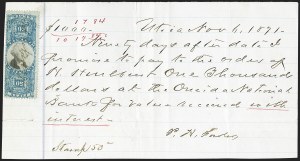 17 94
$1000.00 Utica Nov 6, 1871.
Ninety days after date I
promise to pay to the order of
One Thousand
dollars at the Oneida National
Bank for value received with
interest.
Stamp 50